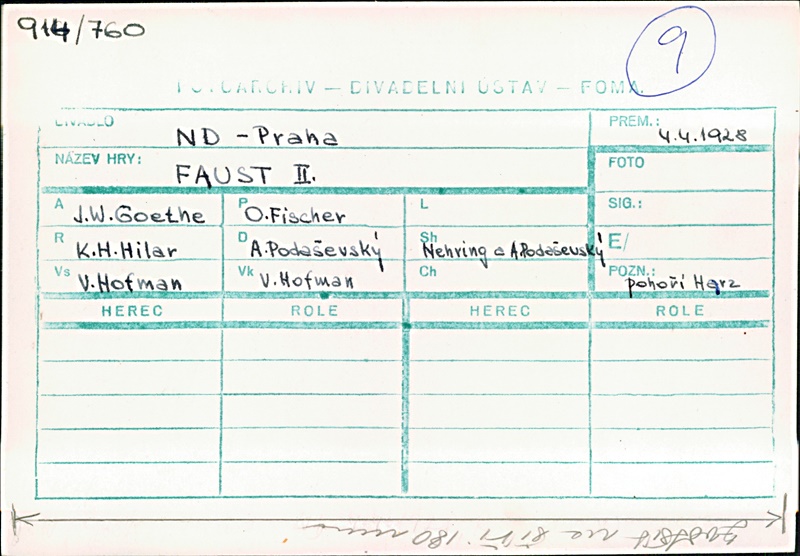 914/760
9
FOTOARCHIV — DIVADELNÍ ÚSTAV — FOMA
DIVADLO ND - Praha PREM.: 4.4.1928
NÁZEV HRY: FAUST II. FOTO
A J.W.Goethe P O.Fischer L SIG.:
R K.H.Hilar D A.Podaševský Sh Nehring a A.Podaševský E/
Vs V.Hofman Vk V.Hofman Ch POZN.: pohoří Harz
HEREC ROLE HEREC ROLE
zvětšit na šíři 180 mm